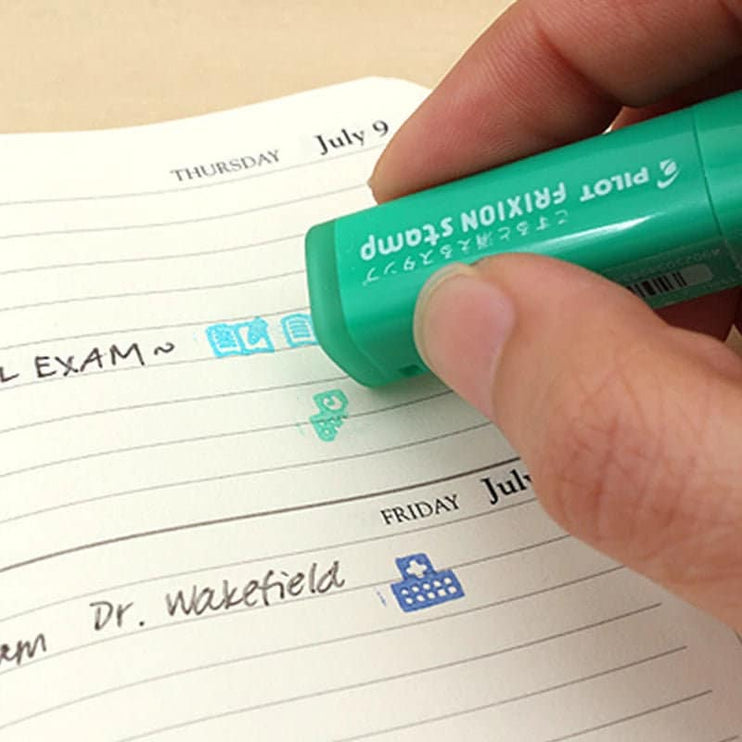 THURSDAY July 9
PILOT FRIXION Stamp
こすると消えるスタンプ
L EXAM~
FRIDAY July
am Dr. Wakefield